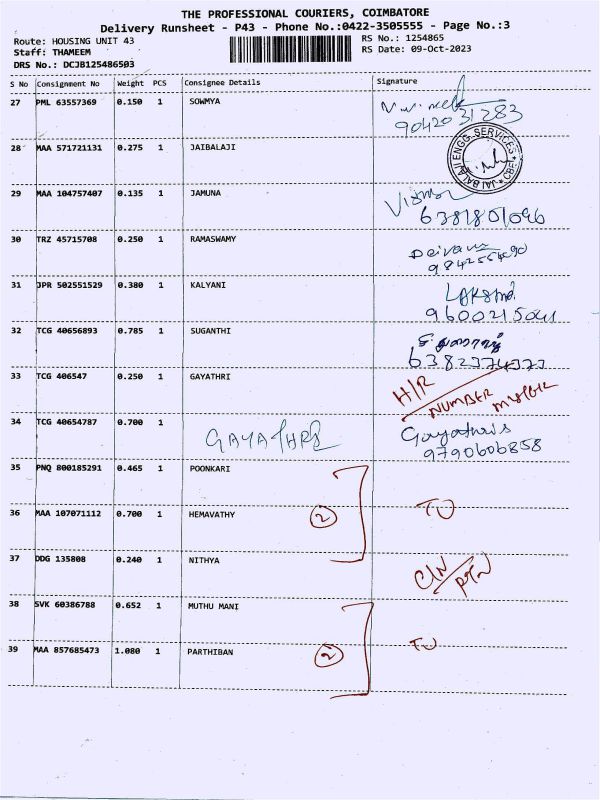 THE PROFESSIONAL COURIERS, COIMBATORE
Delivery Runsheet - P43 - Phone No.:0422-3505555 - Page No.:3
Route: HOUSING UNIT 43 RS No.: 1254865
Staff: THAMEEM RS Date: 09-Oct-2023
DRS No.: DCJB125486503
S No Consignment No Weight PCS Consignee Details Signature
27 PML 63557369 0.150 1 SOWMYA
9042031283
28 MAA 571721131 0.275 1 JAIBALAJI JAI BALAJI ENGG. SERVICES CBE
29 MAA 104757407 0.135 1 JAMUNA
6381801096
30 TRZ 45715708 0.250 1 RAMASWAMY
31 JPR 502551529 0.380 1 KALYANI
9600215041
32 TCG 40656893 0.785 1 SUGANTHI
33 TCG 406547 0.250 1 GAYATHRI H/R
NUMBER
34 TCG 40654787 0.700 1 Gayathri
9790606858
35 PNQ 800185291 0.465 1 POONKARI
36 MAA 107071112 0.700 1 HEMAVATHY 2
37 DDG 135808 0.240 1 NITHYA
38 SVK 60386788 0.652 1 MUTHU MANI
39 MAA 857685473 1.080 1 PARTHIBAN 2